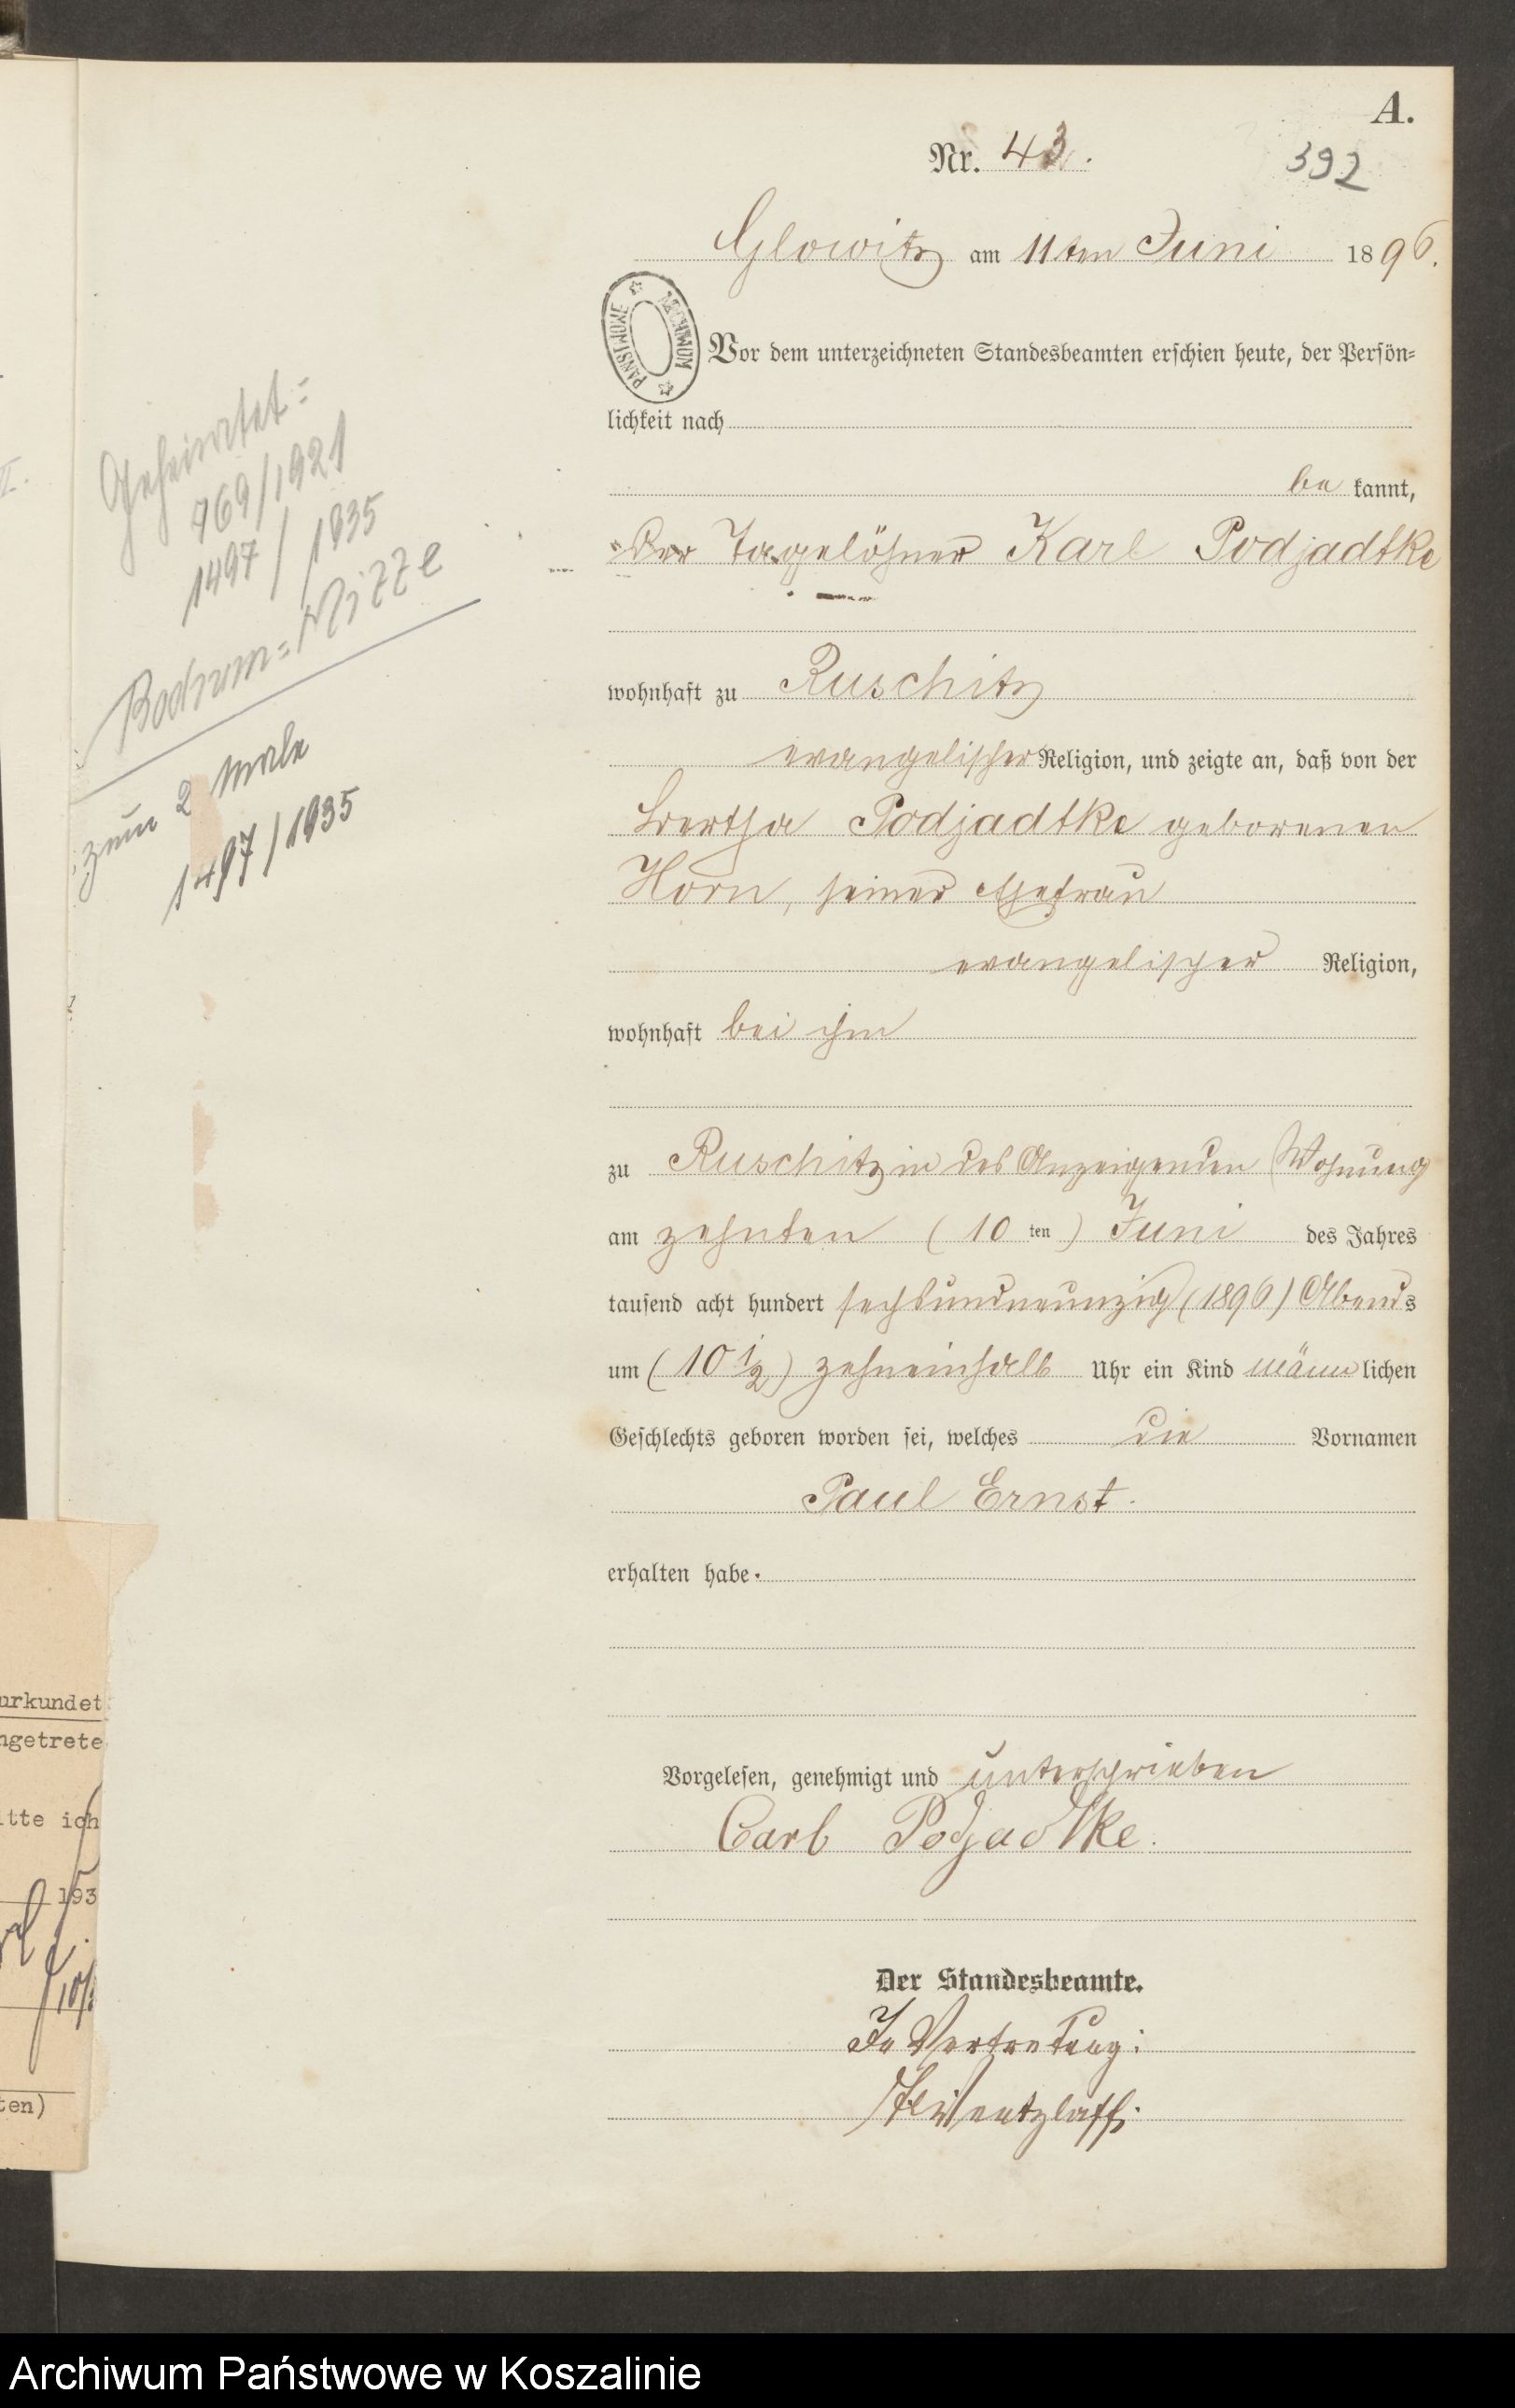 A.
Nr. 43.
392
Glowitz am 11ten Juni 1896.
ARCHIWUM PAŃSTWOWE
Vor dem unterzeichneten Standesbeamten erschien heute, der Persön-
lichkeit nach
be kannt,
der Tagelöhner Karl Podjadtke
wohnhaft zu Ruschitz
evangelischer Religion, und zeigte an, daß von der
Bertha Podjadtke geborenen
Horn, seiner Ehefrau
evangelischer Religion,
wohnhaft bei ihm
zu Ruschitz in des Anzeigenden Wohnung
am zehnten (10 ten) Juni des Jahres
tausend acht hundert sechsundneunzig (1896) Abends
um (10 1/2) zehneinhalb Uhr ein Kind männlichen
Geschlechts geboren worden sei, welches die Vornamen
Paul Ernst.
erhalten habe.
Vorgelesen, genehmigt und unterschrieben
Carl Podjadtke.
Der Standesbeamte.
In Vertretung:
Wentzlaff.
Geheiratet:
769/1921
1497/1935
Bochum-Mitte
zum 2 Male
1497/1935
urkundet
ngetrete
itte ich
193
ten)
Archiwum Państwowe w Koszalinie